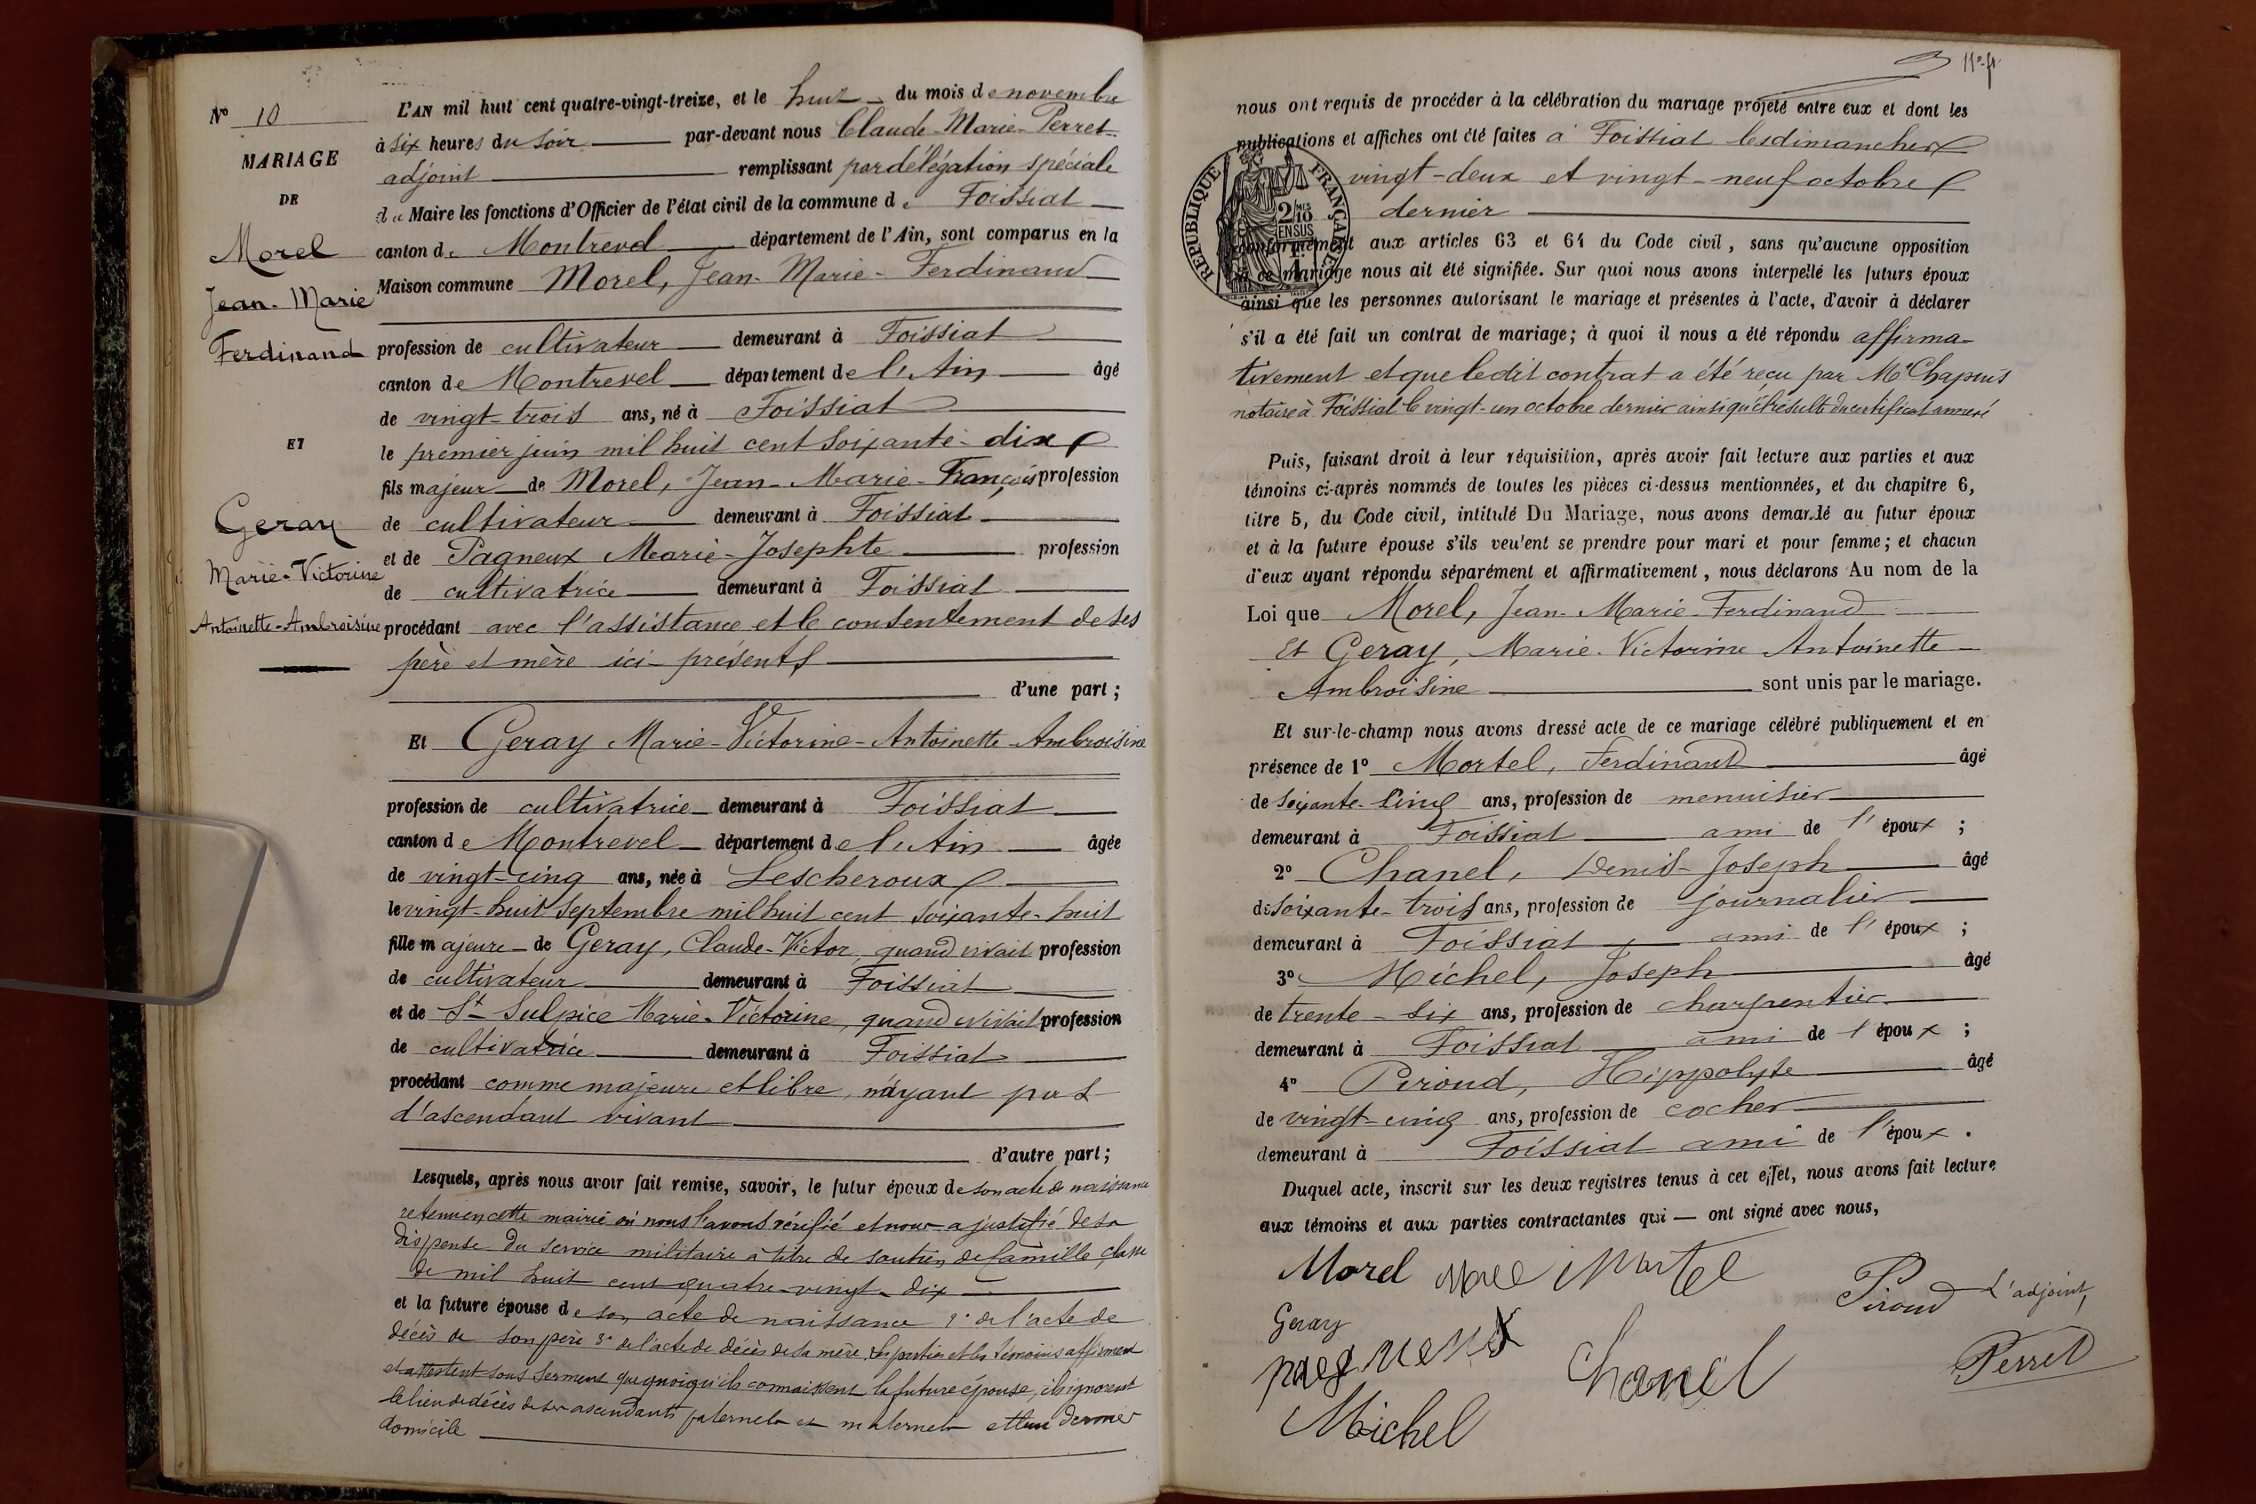 N° 10
MARIAGE
DE
Morel
Jean-Marie
Ferdinand
ET
Geray
Marie-Victorine
Antoinette-Ambroisine
L'AN mil huit cent quatre-vingt-treize, et le huit du mois de novembre
à six heures du soir par-devant nous Claude-Marie-Perret
adjoint remplissant par délégation spéciale
du Maire les fonctions d'Officier de l'état civil de la commune de Foissiat
canton de Montrevel département de l'Ain, sont comparus en la
Maison commune Morel, Jean-Marie-Ferdinand
profession de cultivateur demeurant à Foissiat
canton de Montrevel département de l'Ain âgé
de vingt-trois ans, né à Foissiat
le premier juin mil huit cent soixante-dix
fils majeur de Morel, Jean-Marie-François profession
de cultivateur demeurant à Foissiat
et de Pagneux Marie-Josephte profession
de cultivatrice demeurant à Foissiat
procédant avec l'assistance et le consentement de ses
père et mère ici présents
d'une part ;
Et Geray Marie-Victorine-Antoinette-Ambroisine
profession de cultivatrice demeurant à Foissiat
canton de Montrevel département de l'Ain âgée
de vingt-cinq ans, née à Lescheroux
le vingt-huit septembre mil huit cent soixante-huit
fille majeure de Geray, Claude-Victor, quand vivait profession
de cultivateur demeurant à Foissiat
et de St Sulpice Marie-Victorine, quand vivait profession
de cultivatrice demeurant à Foissiat
procédant comme majeure et libre, n'ayant pas
d'ascendant vivant
d'autre part ;
Lesquels, après nous avoir fait remise, savoir, le futur époux de son acte de naissance
retenu en cette mairie où nous l'avons vérifié et nous a justifié de sa
dispense du service militaire à titre de soutien de famille, classe
de mil huit cent quatre-vingt-dix
et la future épouse de son acte de naissance 2° de l'acte de
décès de son père 3° de l'acte de décès de sa mère. Les parties et les témoins affirment
et attestent sous serment que quoiqu'ils connaissent la future épouse, ils ignorent
le lieu de décès de ses ascendants paternels et maternels et leur dernier
domicile
nous ont requis de procéder à la célébration du mariage projeté entre eux et dont les
publications et affiches ont été faites à Foissiat les dimanches
vingt-deux et vingt-neuf octobre
dernier
RÉPUBLIQUE FRANÇAISE
2/10
EN SUS
conformément aux articles 63 et 64 du Code civil, sans qu'aucune opposition
à ce mariage nous ait été signifiée. Sur quoi nous avons interpellé les futurs époux
ainsi que les personnes autorisant le mariage et présentes à l'acte, d'avoir à déclarer
s'il a été fait un contrat de mariage ; à quoi il nous a été répondu affirma-
tivement et que ledit contrat a été reçu par Me Chapuis
notaire à Foissiat le vingt-un octobre dernier ainsi qu'il résulte du certificat annexé
Puis, faisant droit à leur réquisition, après avoir fait lecture aux parties et aux
témoins ci-après nommés de toutes les pièces ci-dessus mentionnées, et du chapitre 6,
titre 5, du Code civil, intitulé Du Mariage, nous avons demandé au futur époux
et à la future épouse s'ils veulent se prendre pour mari et pour femme ; et chacun
d'eux ayant répondu séparément et affirmativement, nous déclarons Au nom de la
Loi que Morel, Jean-Marie-Ferdinand
Et Geray, Marie-Victorine Antoinette
Ambroisine sont unis par le mariage.
Et sur-le-champ nous avons dressé acte de ce mariage célébré publiquement et en
présence de 1° Mortel, Ferdinand âgé
de soixante-cinq ans, profession de menuisier
demeurant à Foissiat ami de l'époux ;
2° Chanel, Denis-Joseph âgé
de soixante-trois ans, profession de journalier
demeurant à Foissiat ami de l'époux ;
3° Michel, Joseph âgé
de trente-six ans, profession de charpentier
demeurant à Foissiat ami de l'époux ;
4° Piroud, Hippolyte âgé
de vingt-cinq ans, profession de cocher
demeurant à Foissiat ami de l'époux.
Duquel acte, inscrit sur les deux registres tenus à cet effet, nous avons fait lecture
aux témoins et aux parties contractantes qui — ont signé avec nous,
Morel Morel Mortel
Piroud L'adjoint,
Geray
pagneux Chanel Perret
Michel